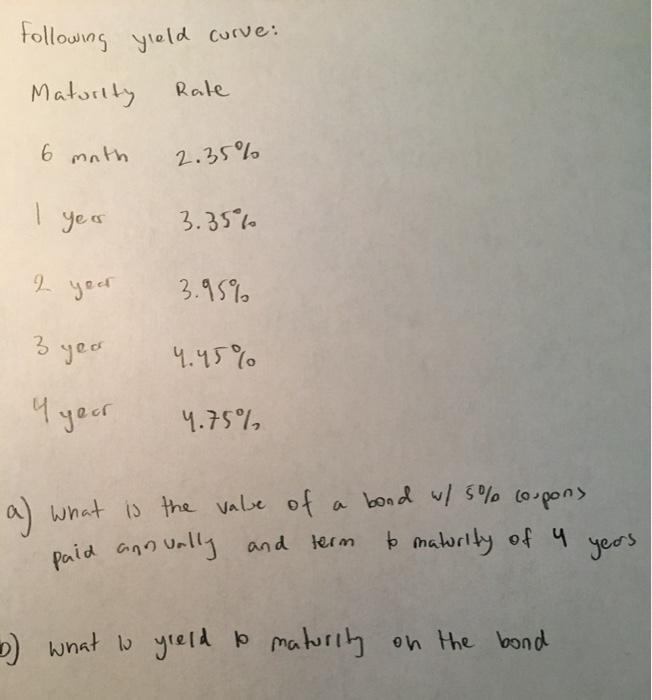 Following yield curve:
Maturity Rate
6 mnth 2.35%
1 year 3.35%
2 year 3.95%
3 year 4.45%
4 year 4.75%
a) what is the value of a bond w/ 5% coupons
paid annually and term to maturity of 4 years
b) what is yield to maturity on the bond